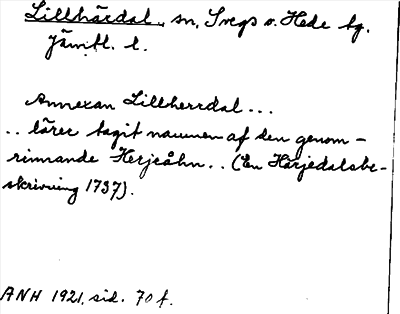 Lillhärdal, sn, Svegs o. Hede tg.
Jämtl. l.
Annexan Lillherrdal...
.. lärer tagit namnen af den genom-
rinnande Herjeåhn.. (En Härjedalsbe-
skrivning 1737).
ANH 1921, sid. 70 f.